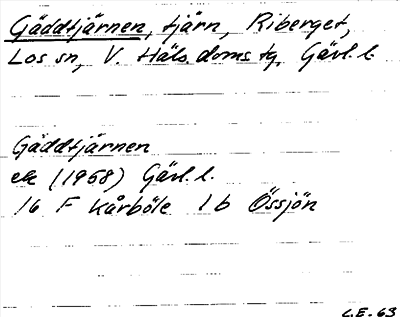 Gäddtjärnen, tjärn, Riberget,
Los sn, V. Häls. doms tg, Gävl. l.
Gäddtjärnen
ek (1968) Gävl. l.
16 F Kårböle 1 b Össjön
C.E.-63